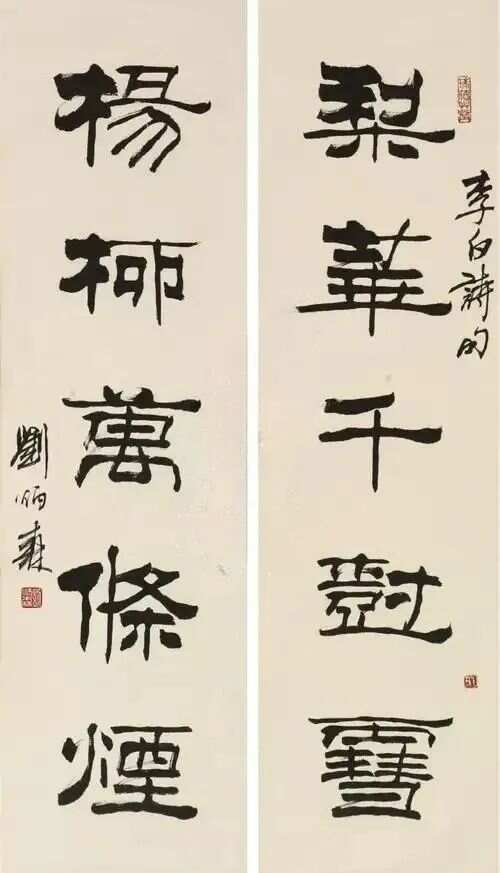 李白詩句
梨華千樹雪
楊柳萬條煙
劉炳森